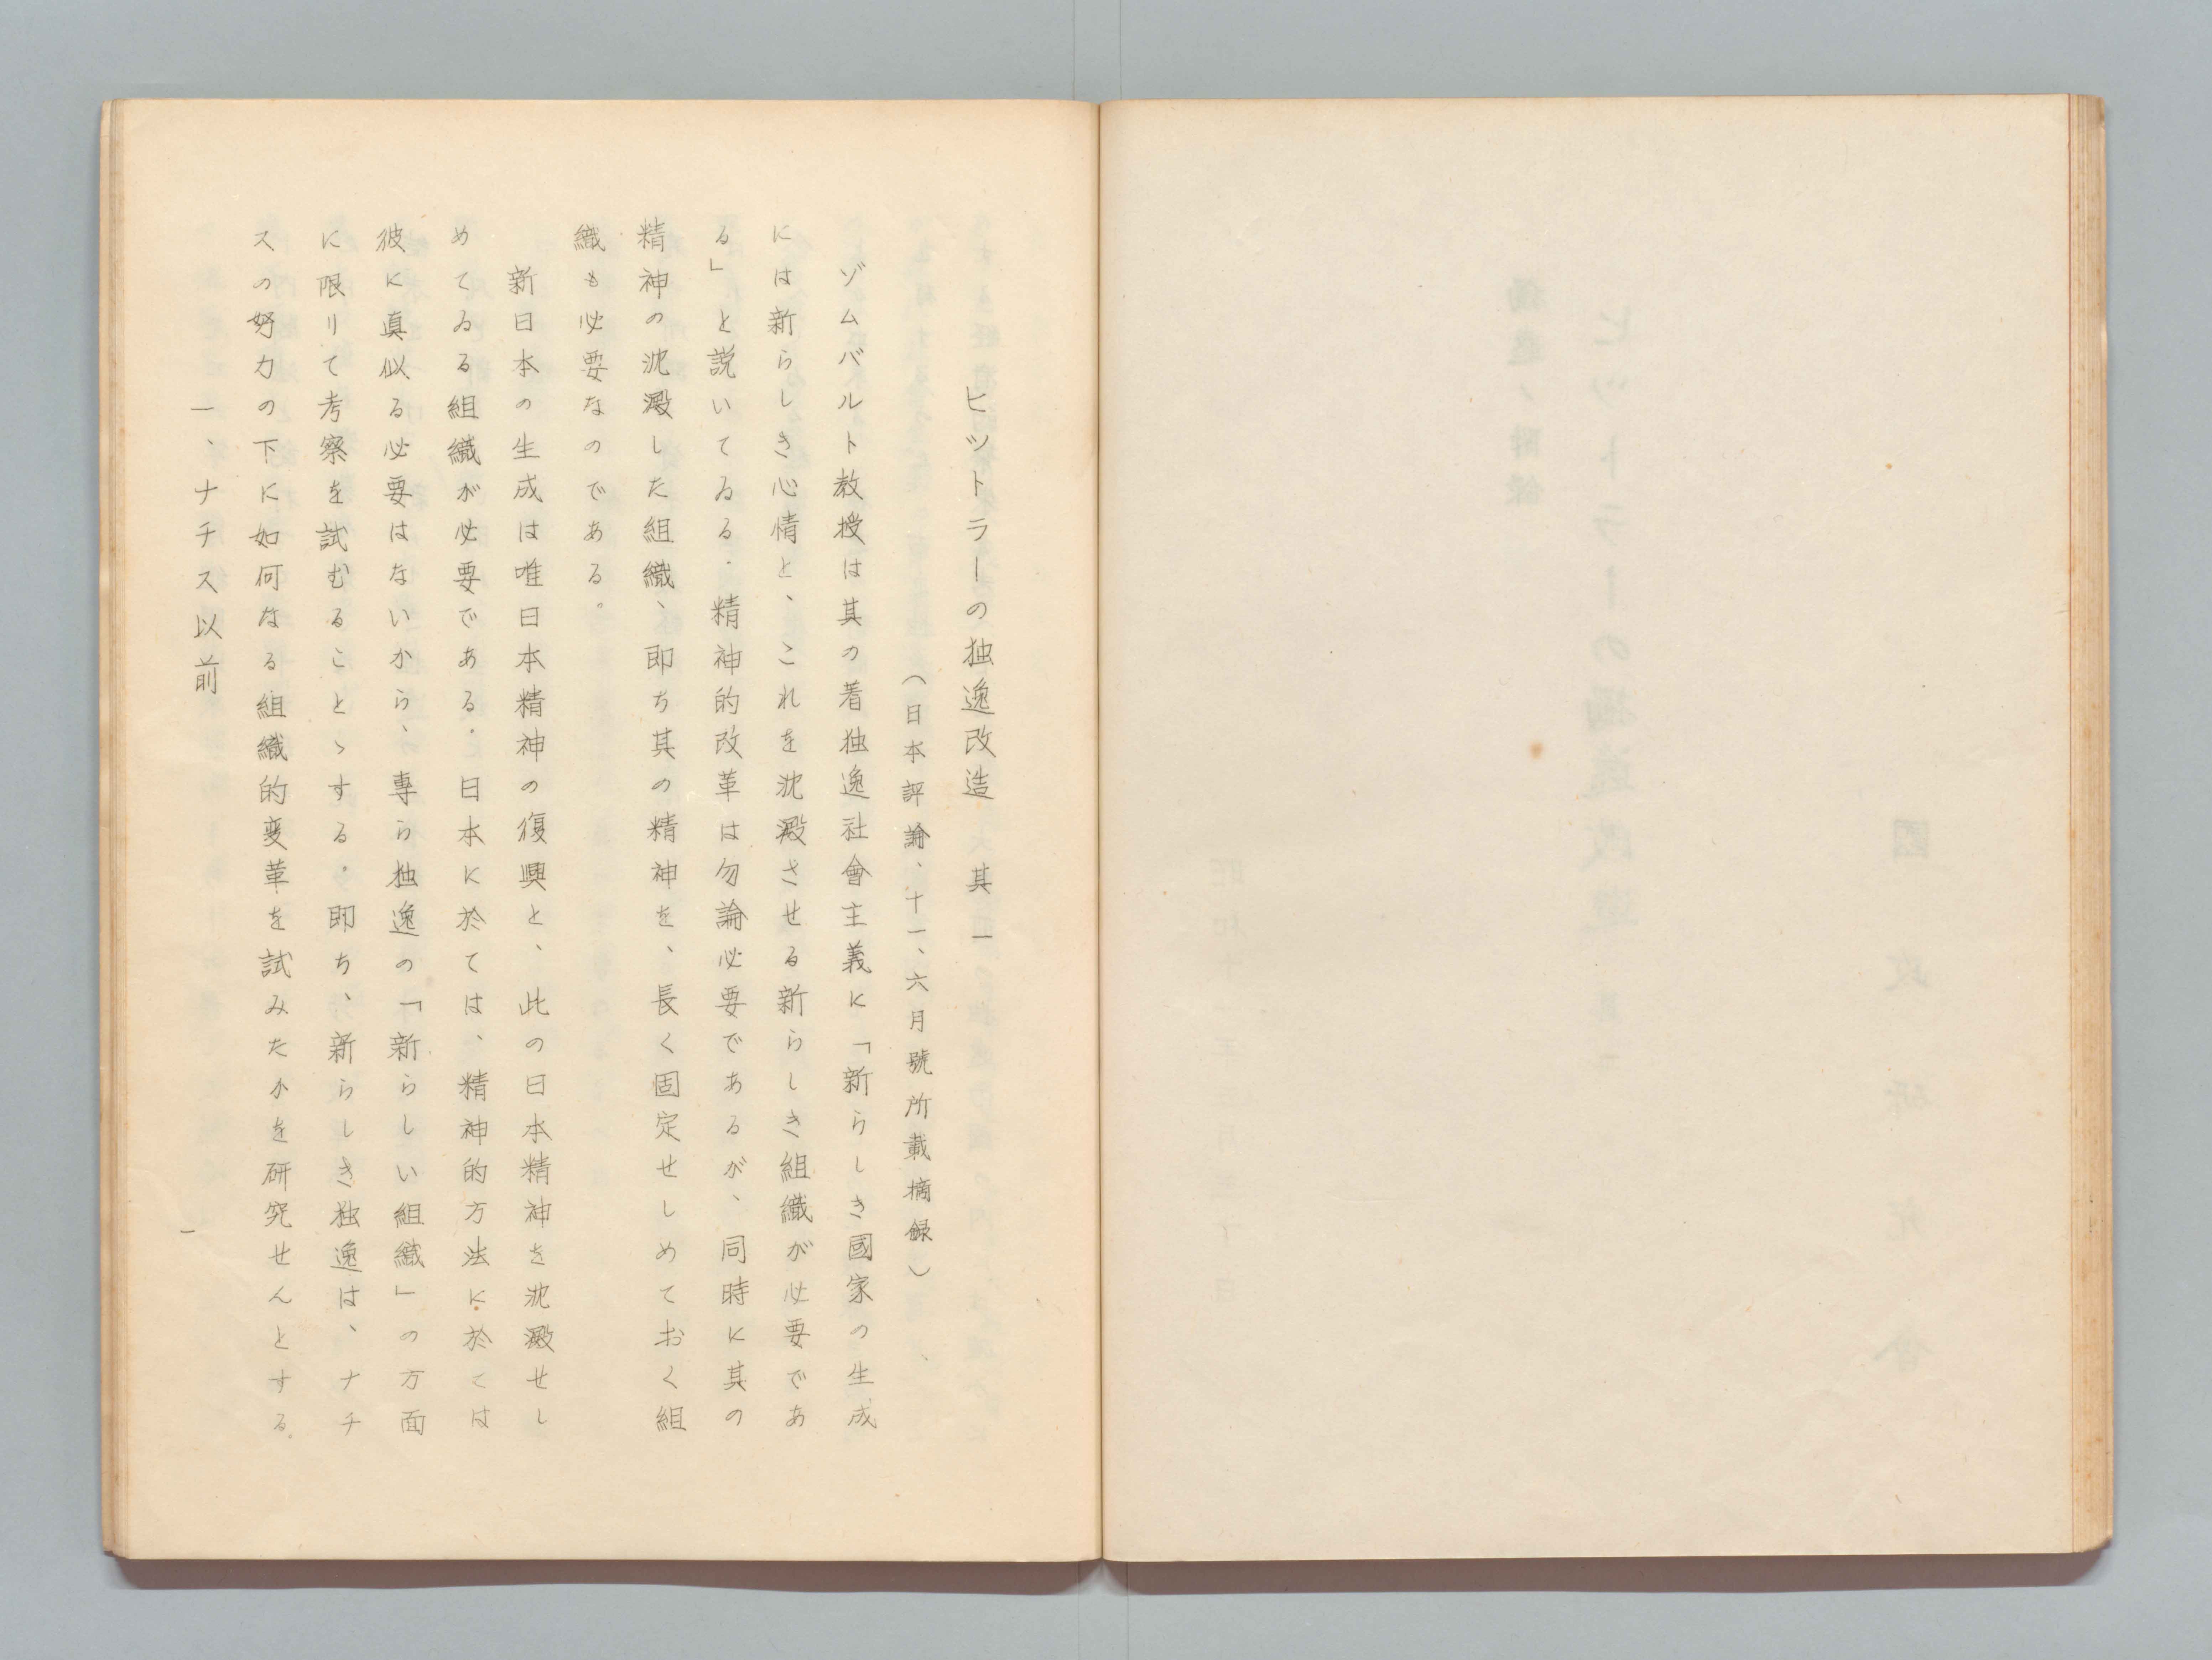 ヒットラーの独逸改造　其一
（日本評論、十一、六月號所載摘録）
ゾムバルト教授は其の著独逸社會主義に「新らしき國家の生成
には新らしき心情と、これを沈澱させる新らしき組織が必要であ
る」と説いてゐる．精神的改革は勿論必要であるが、同時に其の
精神の沈澱した組織、即ち其の精神を、長く固定せしめておく組
織も必要なのである。
新日本の生成は唯日本精神の復興と、此の日本精神を沈澱せし
めてゐる組織が必要である．日本に於ては、精神的方法に於ては
彼に真似る必要はないから、専ら独逸の「新らしい組織」の方面
に限りて考察を試むることゝする．即ち、新らしき独逸は、ナチ
スの努力の下に如何なる組織的変革を試みたかを研究せんとする．
一、ナチス以前
一